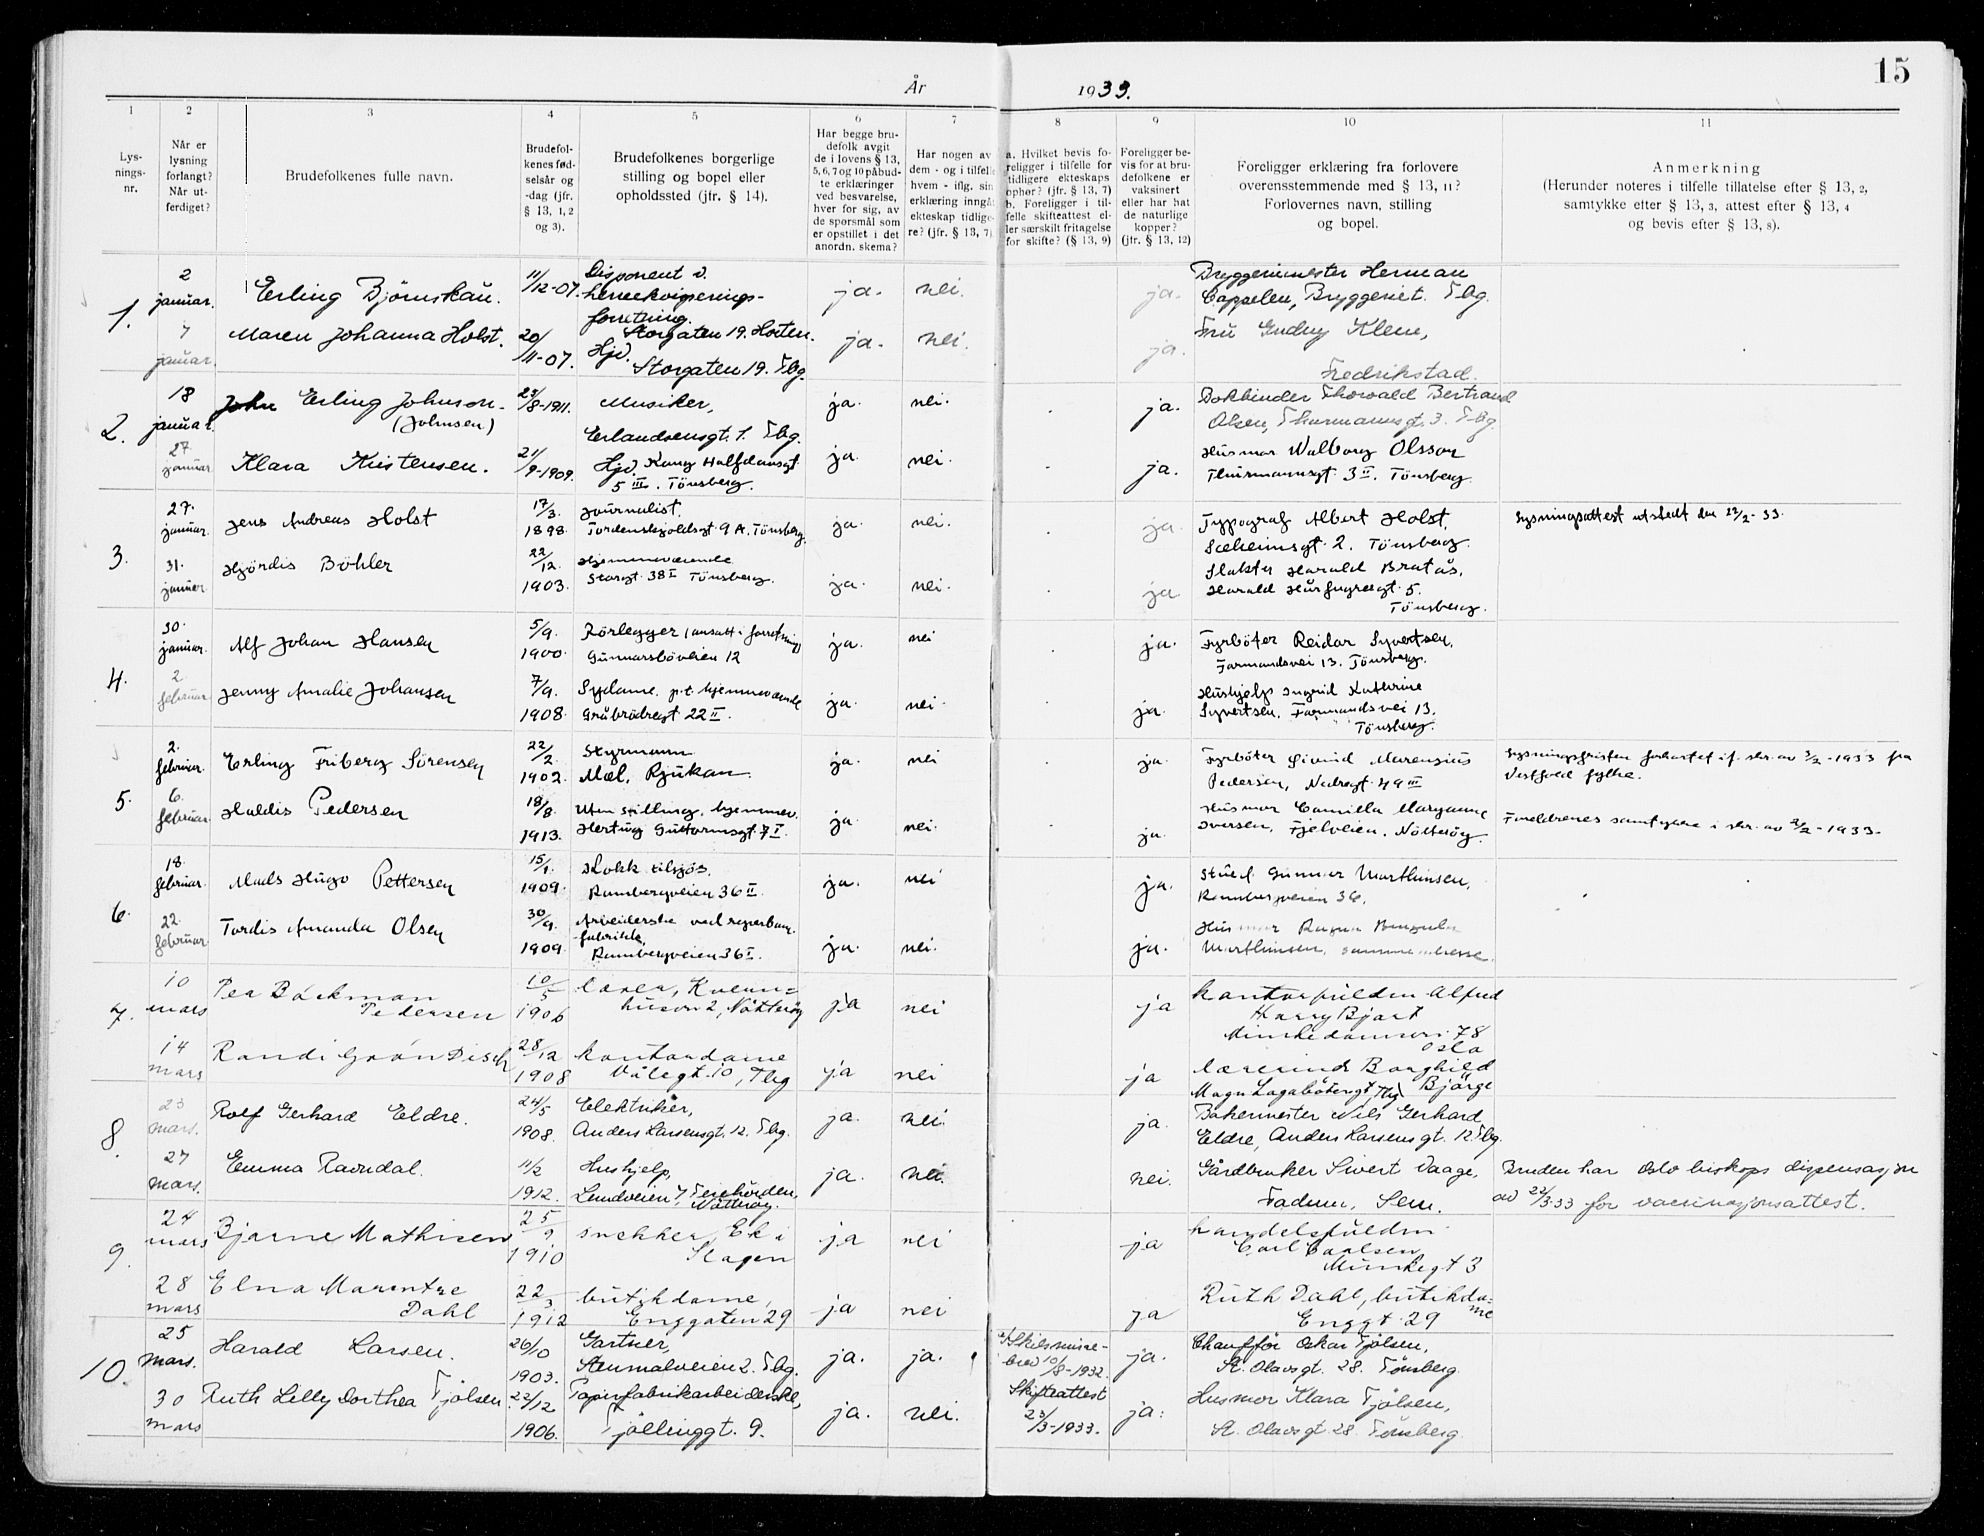 15
År 1933.
1 2 3 4 5 6 7 8 9 10 11
Lys-
nings-
nr.
Når er
lysning
forlangt?
Når ut-
ferdiget?
Brudefolkenes fulle navn.
Brudefol-
kenes fød-
selsår og
-dag (jfr.
§ 13, 1, 2
og 3).
Brudefolkenes borgerlige
stilling og bopel eller
opholdssted (jfr. § 14).
Har begge bru-
defolk avgit
de i lovens § 13,
5, 6, 7 og 10 påbud-
te erklæringer
ved besvarelse,
hver for sig, av
de spørsmål som
er opstillet i det
anordn. skema?
Har nogen av
dem - og i tilfelle
hvem - iflg. sin
erklæring inngåt
ekteskap tidlige-
re? (jfr. § 13, 7)
a. Hvilket bevis fo-
religger i tilfelle for
tidligere ekteskaps
ophør? (jfr. § 13, 7)
b. Foreligger i til-
felle skifteattest el-
ler særskilt fritagelse
for skifte? (§ 13, 9)
Foreligger be-
vis for at bru-
defolkene er
vaksinert
eller har hat
de naturlige
kopper?
(jfr. § 13, 12)
Foreligger erklæring fra forlovere
overensstemmende med § 13, 11?
Forlovernes navn, stilling
og bopel.
Anmerkning
(Herunder noteres i tilfelle tillatelse efter § 13, 2,
samtykke efter § 13, 3, attest efter § 13, 4
og bevis efter § 13, 8).
1.
2 januar.
Erling Björnskau.
11/12-07.
Disponent v.
herreekviperings-
forretning.
Storgaten 19. Horten.
ja. nei. ja.
Bryggerimester Herman
Cappelen, Bryggeriet. Tbg.
7 januar.
Maren Johanna Holst.
20/11-07.
Hjv.
Storgaten 19. Tbg.
ja. nei. ja.
Fru Gudny Klem,
Fredrikstad.
2.
18 januar.
John Erling Johnson
(Johnsen)
23/8-1911.
Musiker,
Erlandsensgt. 1. Tbg.
ja. nei. ja.
Bokbinder Thorvald Bertrand
Olsen, Thurmannsgt. 3. Tbg.
27 januar
Klara Kristensen.
21/9-1909.
Hjv. Kong Halfdansgt.
5 III. Tönsberg.
ja. nei. ja.
Husmor Walborg Olsson
Thurmannsgt. 3 II. Tönsberg
3.
27. januar.
Jens Andreas Holst
17/3. 1898.
Journalist.
Tordenskjoldsgt. 9 A. Tönsberg.
ja. nei. ja
Typograf Albert Holst.
Sæheimsgt. 2. Tönsberg.
Lysningsattest utstedt den 22/2-33.
31. januar.
Hjördis Böhler
22/12. 1903.
Hjemmeværende
Storgt. 38 I Tönsberg.
ja. nei. ja
Slakter Harald Bratås,
Harald Hårfagresgt. 5.
Tönsberg.
4.
30. januar.
Alf Johan Hansen
5/9. 1900.
Rörlegger (ansatt i forretning)
Gunnarsböveien 12
ja. nei ja.
Fyrböter Reidar Syvertsen,
Farmandsvei 13. Tönsberg.
2 februar
Jenny Amalie Johansen
7/9. 1908.
Sydame, p.t. hjemmeværende
Gråbrödregt 22 II.
ja. nei. ja.
Hushjelp Ingrid Kathrine
Syvertsen. Farmandsvei 13.
Tönsberg.
5.
2. februar.
Erling Friberg Sörensen
22/2. 1902.
Styrmann
Mæl. Rjukan
ja. nei ja.
Fyrböter Eivind Marensius
Pedersen, Nedregt 49 III
Lysningsfristen forkortet if. skr. av 3/2-1933 fra
Vestfold fylke.
6. februar
Haldis Pedersen
18/8. 1913.
Uten stilling, hjemmev.
Hertug Guttormsgt. 7 I.
ja. nei. ja.
Husmor Camilla Maryanne
Iversen, Fjelveien. Nötteröy.
Foreldrenes samtykke i skr. av 2/2-1933.
6.
18. februar.
Mads Hugo Pettersen
15/1. 1909.
Kokk tilsjös.
Rambergveien 36 II.
ja. nei ja.
Stud. Gunnar Marthinsen,
Rambergveien 36.
22. februar
Tordis Amanda Olsen
30/9. 1909.
Arbeiderske ved reperban-
fabrikk,
Rambergveien 36 I.
ja. nei. ja.
Husmor Ragna
Marthinsen, samme adresse.
7.
10 mars
Per Backman
Pedersen
10/5 1906
lærer,
2, Nötteröy
ja nei ja
kontorfuldm. Alfred
Harry Bjart
Munkedamsvn. 78
Oslo
14 mars
Randi Grön Disch
28/12 1908
kontordame
Vålegt. 10, Tbg
ja nei ja
lærerinde Borghild
Bjørge
Magn Lagabötersgt Tbg
8.
23 mars.
Rolf Gerhard Eldre.
24/5 1908.
Elektriker,
Anders Larsensgt. 12. Tbg.
ja. nei. ja.
Bakermester Nils Gerhard
Eldre, Anders Larsens gt. 12 Tbg.
27 mars.
Emma Ravndal.
11/2 1912.
Hushjelp,
Lundveien 7, Teiehöiden,
Nötteröy.
ja. nei. nei.
Gårdbruker Sivert Vaage,
Fadum, Sem.
Bruden har Oslo biskops dispensasjon
av 22/3.33 for vaccinasjonsattest.
9.
24 mars
Bjarne Mathisen
25/9 1910
snekker, Ek i
Slagen
ja nei ja
handelsfuldm.
Carl Carlsen
Munkegt 3
28 mars
Elna Marentze
Dahl
22/3 1912
butikdame,
Enggaten 29
ja nei ja
Ruth Dahl, butikda-
me
Enggt. 29
10.
25 mars.
Harald Larsen.
26/10 1903.
Gartner,
Stenmalveien 2. Tbg.
ja. ja.
Skilsmisse-
brev 10/8-1932.
ja.
Chauffør Oskar Tjölsen,
St. Olavsgt. 28. Tönsberg.
30 mars
Ruth Lilly Dorthea Tjölsen
22/12 1906.
Papirfabrikarbeiderske,
Tjöllinggt. 9.
ja. nei.
Skifteattest
23/3-1933.
ja.
Husmor Klara Tjölsen,
St. Olavsgt. 28. Tönsberg.